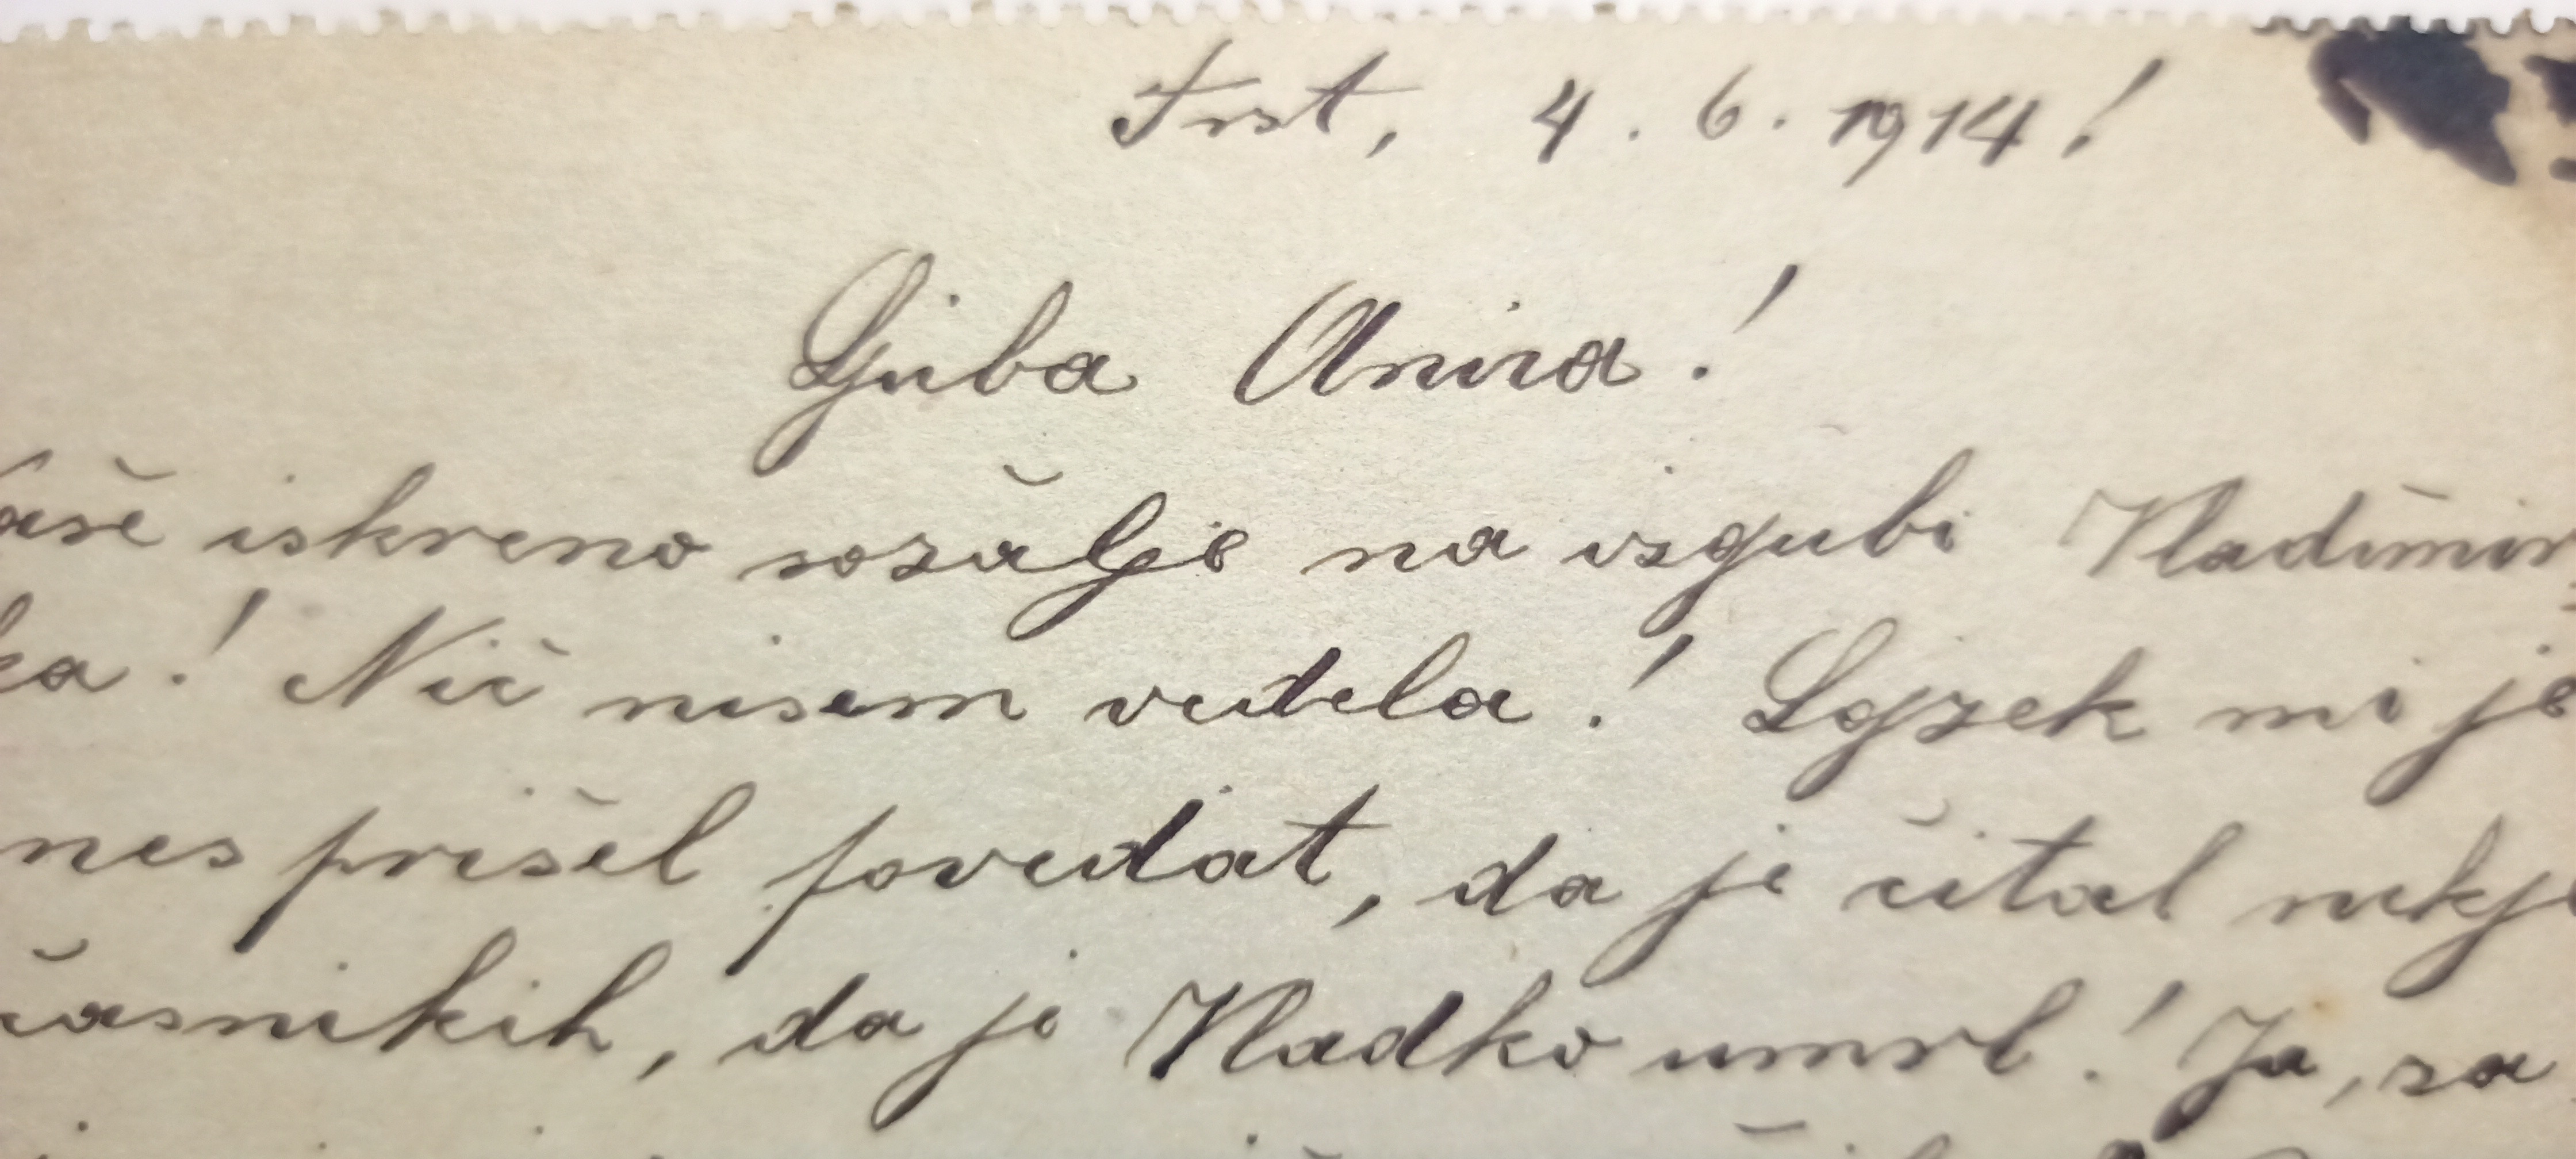 Trst, 4. 6. 1914!
Ljuba Anira!
aše iskreno sožalje na izgubi Vladimir
ka! Nič nisem vedela! Lojzek mi je
nes prišel povedat, da je čital nekje
časnikih, da je Vladko umrl! Ja, za